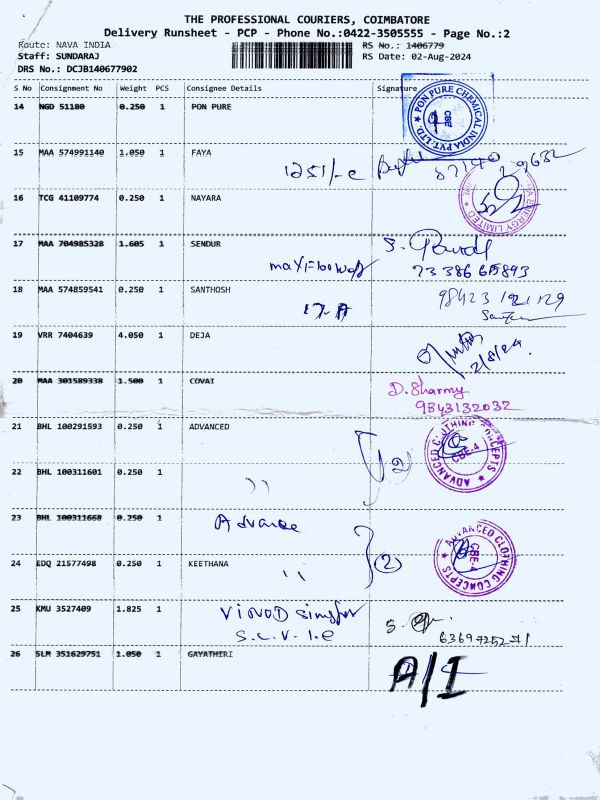 THE PROFESSIONAL COURIERS, COIMBATORE
Delivery Runsheet - PCP - Phone No.:0422-3505555 - Page No.:2
Route: NAVA INDIA RS No.: 1406779
Staff: SUNDARAJ RS Date: 02-Aug-2024
DRS No.: DCJB140677902
S No Consignment No Weight PCS Consignee Details Signature
14 NGD 51180 0.250 1 PON PURE
PON PURE CHEMICAL INDIA PVT. LTD. CBE
15 MAA 574991140 1.050 1 FAYA
125/-c
16 TCG 41109774 0.250 1 NAYARA
ENERGY LIMITED
17 MAA 704985328 1.605 1 SENDUR
18 MAA 574859541 0.250 1 SANTHOSH
17-A
19 VRR 7404639 4.050 1 DEJA
2/8/24
20 MAA 301589338 1.500 1 COVAI D. Sharmy
9843132032
21 BHL 100291593 0.250 1 ADVANCED
(2) ADVANCED CLOTHING CONCEPTS CBE-4
22 BHL 100311601 0.250 1
,,
23 BHL 100311668 0.250 1 Advance
(2) ADVANCED CLOTHING CONCEPTS CBE-4
24 EDQ 21577498 0.250 1 KEETHANA
,,
25 KMU 3527409 1.825 1 VINOD
26 SLM 351629751 1.050 1 GAYATHIRI A/I